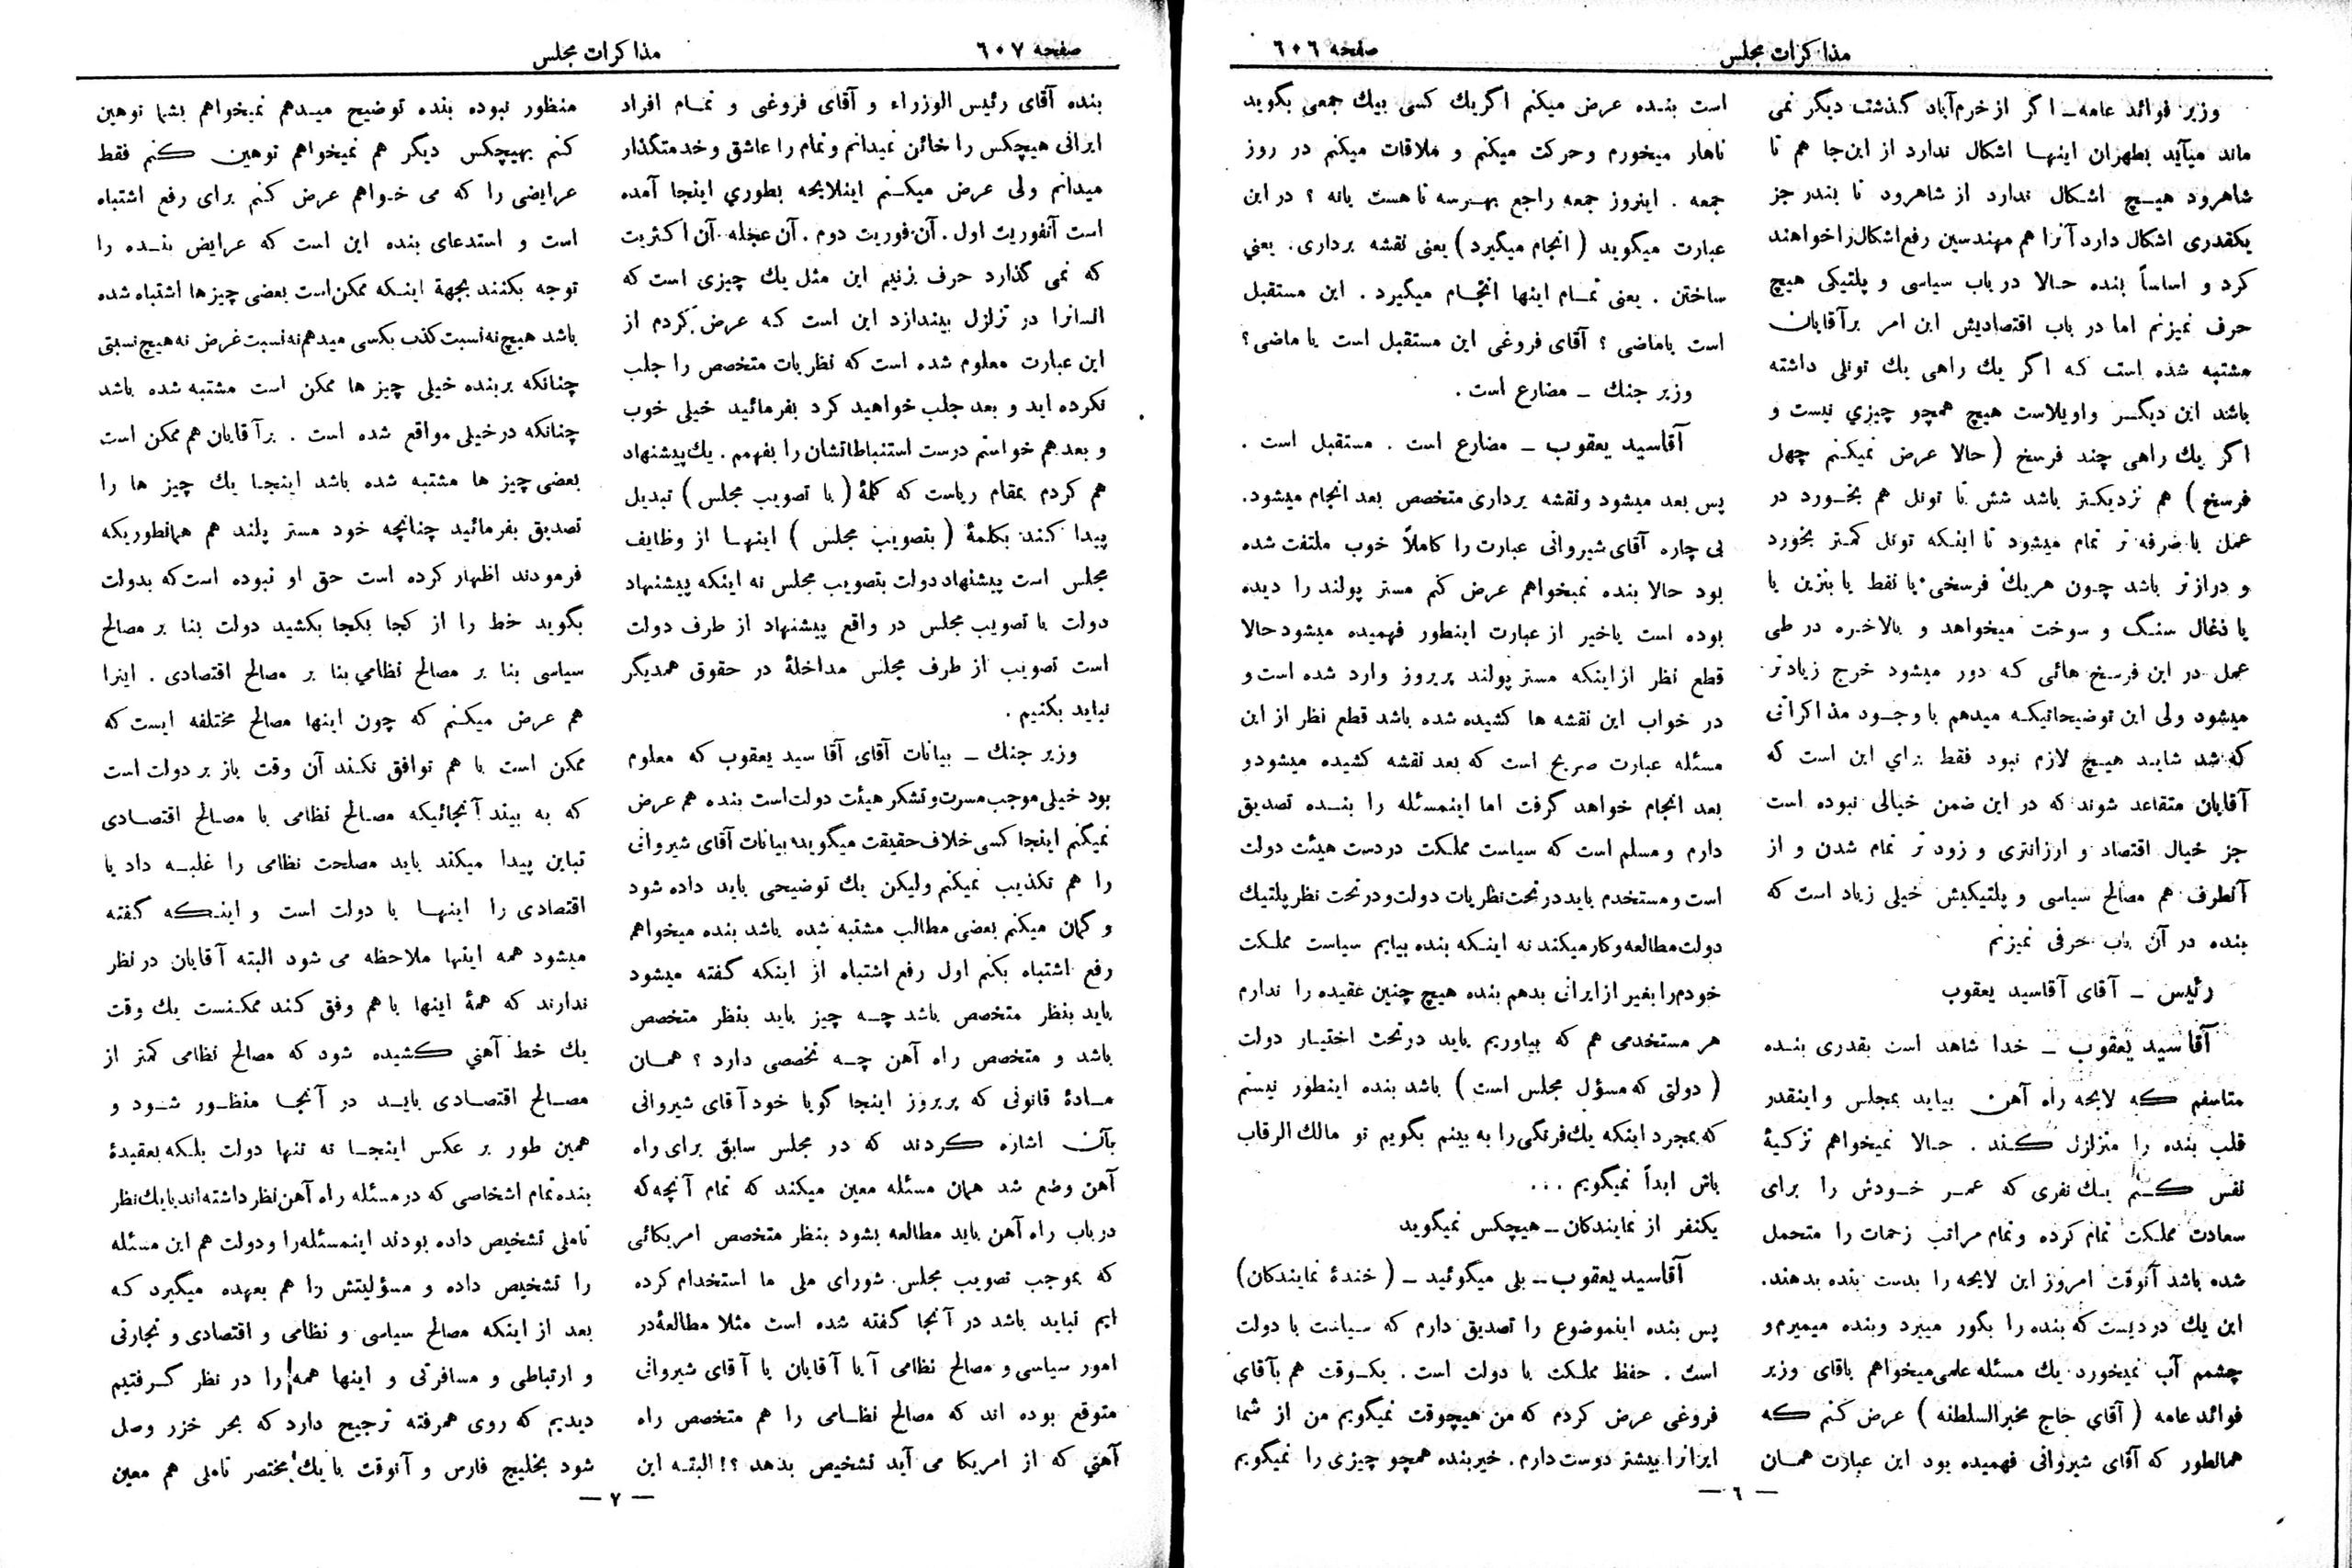 مذاکرات مجلس
صفحه ٦٠٦
وزیر فوائد عامه ـ اگر از خرم‌آباد گذشت دیگر نمی
ماند میآید بطهران اینها اشکال ندارد از این‌جا هم تا
شاهرود هیچ اشکال ندارد از شاهرود تا بندر جز
یکقدری اشکال دارد آنرا هم مهندسین رفع اشکال را خواهند
کرد و اساساً بنده حالا در باب سیاسی و پلتیکی هیچ
حرف نمیزنم اما در باب اقتصادیش این امر بر آقایان
مشتبه شده است که اگر یك راهی یك تونلی داشته
باشد این دیگر واویلاست هیچ همچو چیزي نیست و
اگر یك راهی چند فرسخ ( حالا عرض نمیکنم چهل
فرسخ ) هم نزدیکتر باشد شش تا تونل هم بخورد در
عمل با صرفه تر تمام میشود تا اینکه تونل کمتر بخورد
و درازتر باشد چون هر یك فرسخی یا نفط یا بنزین یا
یا ذغال سنگ و سوخت میخواهد و بالاخره در طی
عمل در این فرسخ هائی که دور میشود خرج زیادتر
میشود ولی این توضیحاتیکه میدهم با وجود مذاکراتی
که شد شاید هیچ لازم نبود فقط براي این است که
آقایان متقاعد شوند که در این ضمن خیالی نبوده است
جز خیال اقتصاد و ارزانتری و زود تر تمام شدن و از
آنطرف هم مصالح سیاسی و پلتیکیش خیلی زیاد است که
بنده در آن باب حرفی نمیزنم
رئیس ـ آقای آقاسید یعقوب
آقا سید یعقوب ـ خدا شاهد است بقدری بنده
متاسفم که لایحه راه آهن بیاید بمجلس و اینقدر
قلب بنده را متزلزل کند . حالا نمیخواهم تزکیهٔ
نفس کنم یك نفری که عمر خودش را برای
سعادت مملکت تمام کرده و تمام مراتب زحمات را متحمل
شده باشد آنوقت امروز این لایحه را بدست بنده بدهند.
این یك دردیست که بنده را بگور میبرد و بنده میمیرم و
چشمم آب نمیخورد یك مسئله علمی میخواهم باقای وزیر
فوائد عامه ( آقاي حاج مخبرالسلطنه ) عرض کنم که
همالطور که آقای شیروانی فهمیده بود این عبارت همان
است بنده عرض میکنم اگر یك کسی بیك جمعی بگوید
ناهار میخورم و حرکت میکنم و ملاقات میکنم در روز
جمعه . اینروز جمعه راجع بهرسه تا هست یانه ؟ در این
عبارت میگوید ( انجام میگیرد ) یعنی نقشه برداری. یعني
ساختن . یعنی تمام اینها انجام میگیرد . این مستقبل
است یاماضی ؟ آقای فروغی این مستقبل است یا ماضی ؟
وزیر جنك ـ مضارع است .
آقاسید یعقوب ـ مضارع است . مستقبل است .
پس بعد میشود و نقشه برداری متخصص بعد انجام میشود.
بی چاره آقای شیروانی عبارت را کاملاً خوب ملتفت شده
بود حالا بنده نمیخواهم عرض کنم مستر پولند را دیده
بوده است یاخیر از عبارت اینطور فهمیده میشود حالا
قطع نظر از اینکه مستر پولند پریروز وارد شده است و
در خواب این نقشه ها کشیده شده باشد قطع نظر از این
مسئله عبارت صریح است که بعد نقشه کشیده میشود و
بعد انجام خواهد گرفت اما اینمسئله را بنده تصدیق
دارم و مسلم است که سیاست مملکت در دست هیئت دولت
است و مستخدم باید در تحت نظریات دولت و در تحت نظر پلتیك
دولت مطالعه و کار میکند نه اینکه بنده بیایم سیاست مملکت
خودم را بغیر از ایرانی بدهم بنده هیچ چنین عقیده را ندارم
هر مستخدمی هم که بیاوریم باید در تحت اختیار دولت
( دولتی که مسؤل مجلس است ) باشد بنده اینطور نیستم
که بمجرد اینکه یك فرنگی را به بینم بگویم تو مالك الرقاب
باش ابداً نمیگویم ...
یکنفر از نمایندگان ـ هیچکس نمیگوید
آقاسید یعقوب ـ بلی میگوئید ـ ( خندهٔ نمایندگان )
پس بنده اینموضوع را تصدیق دارم که سیاست با دولت
است . حفظ مملکت با دولت است . یکوقت هم بآقاي
فروغی عرض کردم که من هیچوقت نمیگویم من از شما
ایرانرا بیشتر دوست دارم . خیر بنده همچو چیزی را نمیگویم
ـ ٦ ـ
صفحه ٦٠٧
مذاکرات مجلس
بنده آقای رئیس الوزراء و آقای فروغی و تمام افراد
ایرانی هیچکس را خائن نمیدانم و تمام را عاشق و خدمتگذار
میدانم ولی عرض میکنم اینلایحه بطوري اینجا آمده
است آنفوریت اول . آن فوریت دوم . آن عجله . آن اکثریت
که نمی گذارد حرف بزنیم این مثل یك چیزی است که
السانرا در تزلزل بیندازد این است که عرض کردم از
این عبارت معلوم شده است که نظریات متخصص را جلب
نکرده اید و بعد جلب خواهید کرد بفرمائید خیلی خوب
و بعد هم خواستم درست استنباطاتشان را بفهمم . یك پیشنهاد
هم کردم بمقام ریاست که کلمهٔ ( با تصویب مجلس ) تبدیل
پیدا کند بکلمهٔ ( بتصویب مجلس ) اینها از وظایف
مجلس است پیشنهاد دولت بتصویب مجلس نه اینکه پیشنهاد
دولت با تصویب مجلس در واقع پیشنهاد از طرف دولت
است تصویب از طرف مجلس مداخلهٔ در حقوق همدیگر
نباید بکنیم .
وزیر جنك ـ بیانات آقای آقا سید یعقوب که معلوم
بود خیلی موجب مسرت و تشکر هیئت دولت است بنده هم عرض
نمیکنم اینجا کسی خلاف حقیقت میگوید بیانات آقای شیروانی
را هم تکذیب نمیکنم ولیکن یك توضیحی باید داده شود
و گمان میکنم بعضی مطالب مشتبه شده باشد بنده میخواهم
رفع اشتباه بکنم اول رفع اشتباه از اینکه گفته میشود
باید بنظر متخصص باشد چه چیز باید بنظر متخصص
باشد و متخصص راه آهن چه تخصصی دارد ؟ همان
مادهٔ قانونی که پریروز اینجا گویا خود آقای شیروانی
بآن اشاره کردند که در مجلس سابق برای راه
آهن وضع شد همان مسئله معین میکند که تمام آنچه که
در باب راه آهن باید مطالعه بشود بنظر متخصص امریکائی
که بموجب تصویب مجلس شورای ملی ما استخدام کرده
ایم نباید باشد در آنجا گفته شده است مثلا مطالعهٔ در
امور سیاسی و مصالح نظامی آیا آقایان یا آقای شیروانی
متوقع بوده اند که مصالح نظامی را هم متخصص راه
آهني که از امریکا می آید تشخیص بدهد ؟! البته این
منظور نبوده بنده توضیح میدهم نمیخواهم بشما توهین
کنم بهیچکس دیگر هم نمیخواهم توهین کنم فقط
عرایضی را که می خواهم عرض کنم برای رفع اشتباه
است و استدعای بنده این است که عرایض بنده را
توجه بکنند بجهة اینکه ممکن است بعضی چیزها اشتباه شده
باشد هیچ نه نسبت کذب بکسی میدهم نه نسبت غرض نه هیچ نسبتی
چنانکه بر بنده خیلی چیز ها ممکن است مشتبه شده باشد
چنانکه در خیلی مواقع شده است . بر آقایان هم ممکن است
بعضی چیز ها مشتبه شده باشد اینجا یك چیز ها را
تصدیق بفرمائید چنانچه خود مستر پلند هم همانطوریکه
فرمودند اظهار کرده است حق او نبوده است که بدولت
بگوید خط را از کجا بکجا بکشید دولت بنا بر مصالح
سیاسی بنا بر مصالح نظامي بنا بر مصالح اقتصادی . اینرا
هم عرض میکنم که چون اینها مصالح مختلفه ایست که
ممکن است با هم توافق نکند آن وقت باز بر دولت است
که به بیند آنجائیکه مصالح نظامی با مصالح اقتصادی
تباین پیدا میکند باید مصلحت نظامی را غلبه داد یا
اقتصادی را اینها با دولت است و اینکه گفته
میشود همه اینها ملاحظه می شود البته آقایان در نظر
ندارند که همهٔ اینها با هم وفق کند ممکنست یك وقت
یك خط آهني کشیده شود که مصالح نظامی کمتر از
مصالح اقتصادی باید در آنجا منظور شود و
همین طور بر عکس اینجا نه تنها دولت بلکه بعقیدهٔ
بنده تمام اشخاصی که در مسئله راه آهن نظر داشته اند با یك نظر
تاملی تشخیص داده بودند اینمسئله را و دولت هم این مسئله
را تشخیص داده و مسؤلیتش را هم بعهده میگیرد که
بعد از اینکه مصالح سیاسی و نظامی و اقتصادی و تجارتی
و ارتباطی و مسافرتی و اینها همه را در نظر گرفتیم
دیدیم که روی همرفته ترجیح دارد که بحر خزر وصل
شود بخلیج فارس و آنوقت با یك مختصر تاملی هم معین
ـ ٧ ـ